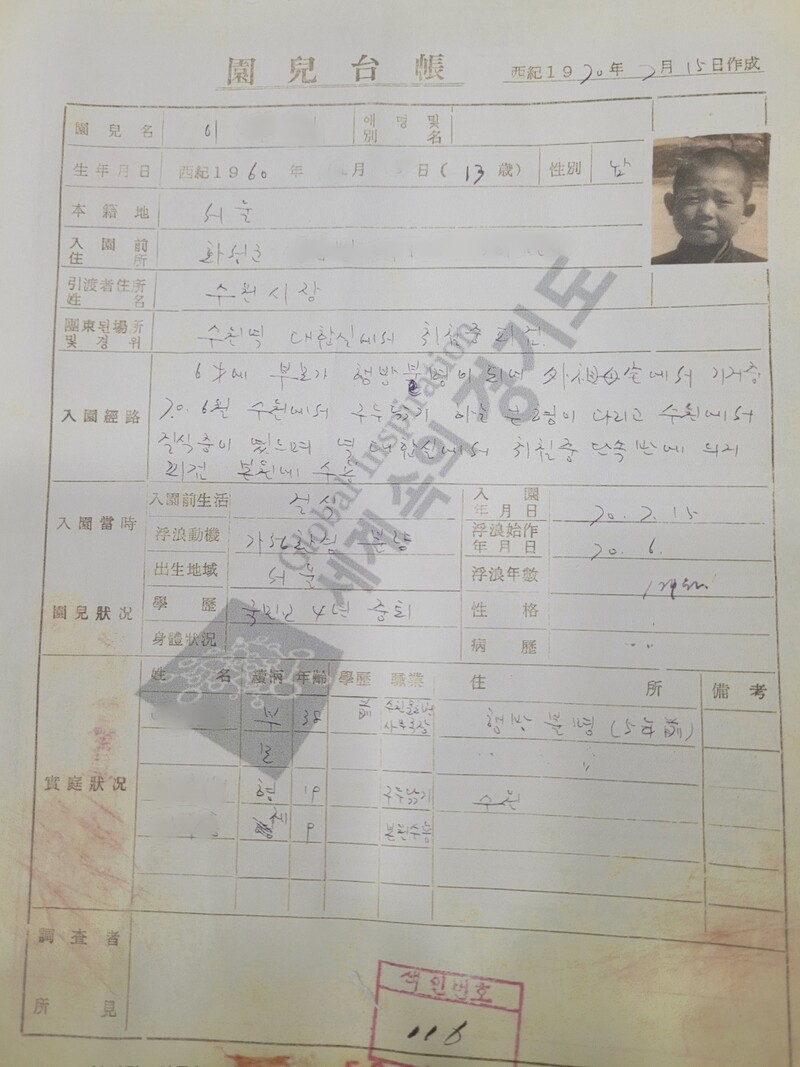 園兒台帳
西紀1970年 7月 15日作成
園兒名 이
애명및
別名
生年月日 西紀1960年 月 日(13歲) 性別 남
本籍地 서울
入園前
住所
화성군
引渡者住所
姓名
수원시장
團束된場所
및경위
수원역 대합실에서 취침중 발견
入園經路
6才에 부모가 행방불명이 되어 外祖母宅에서 기거중
70.6월 수원에서 구두닦기 하는 형이 다리고 수원에서
걸식중이 었으며 역 대합실에서 취침중 단속반에 의거
발견 본원에 수용
入園當時
園兒狀況
入園前生活 걸식
入園
年月日
70.7.15
浮浪動機
浮浪始作
年月日
70.6.
出生地域 서울
浮浪年數
學歷 국민교 4년 중퇴
性格
身體狀況
病歷
姓名 續柄 年齡 學歷 職業 住所 備考
實庭狀況
부 38 행방불명 (5年前)
모 〃 〃
형 19 구두닦기 수원
제 9 본원수용
調査者
所見
색인번호
116
Global Inspiration
세계 속의 경기도